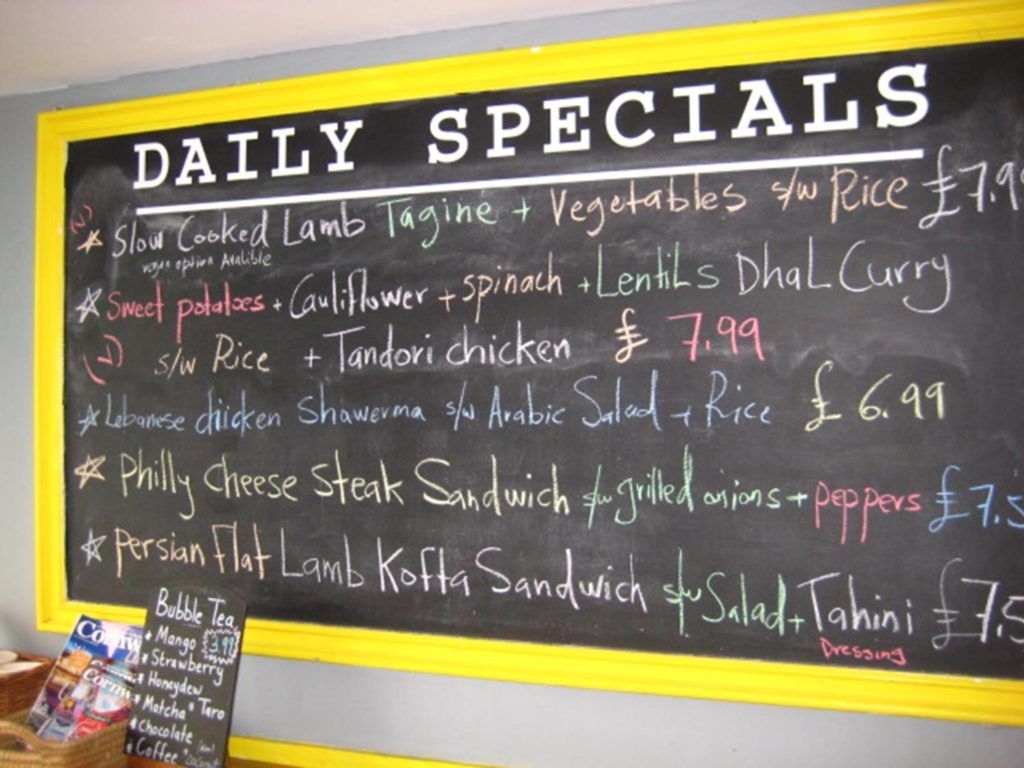 DAILY SPECIALS
Slow Cooked Lamb Tagine + Vegetables s/w Rice £7.9
vegan option Avalible
Sweet potatoes + Cauliflower + spinach + LentiLs DhaL Curry
(V) s/w Rice + Tandori chicken £ 7.99
Lebanese chicken Shawerma s/w Arabic Salad + Rice £ 6.99
Philly cheese Steak Sandwich s/w grilled onions + peppers £7.5
Persian flat Lamb Kofta Sandwich s/w Salad + Tahini £7.5
Dressing
Bubble Tea
* Mango 3.99
* Strawberry
* Honeydew
* Matcha * Taro
* Chocolate
* Coffee * Coconut
Cornw
Cornw